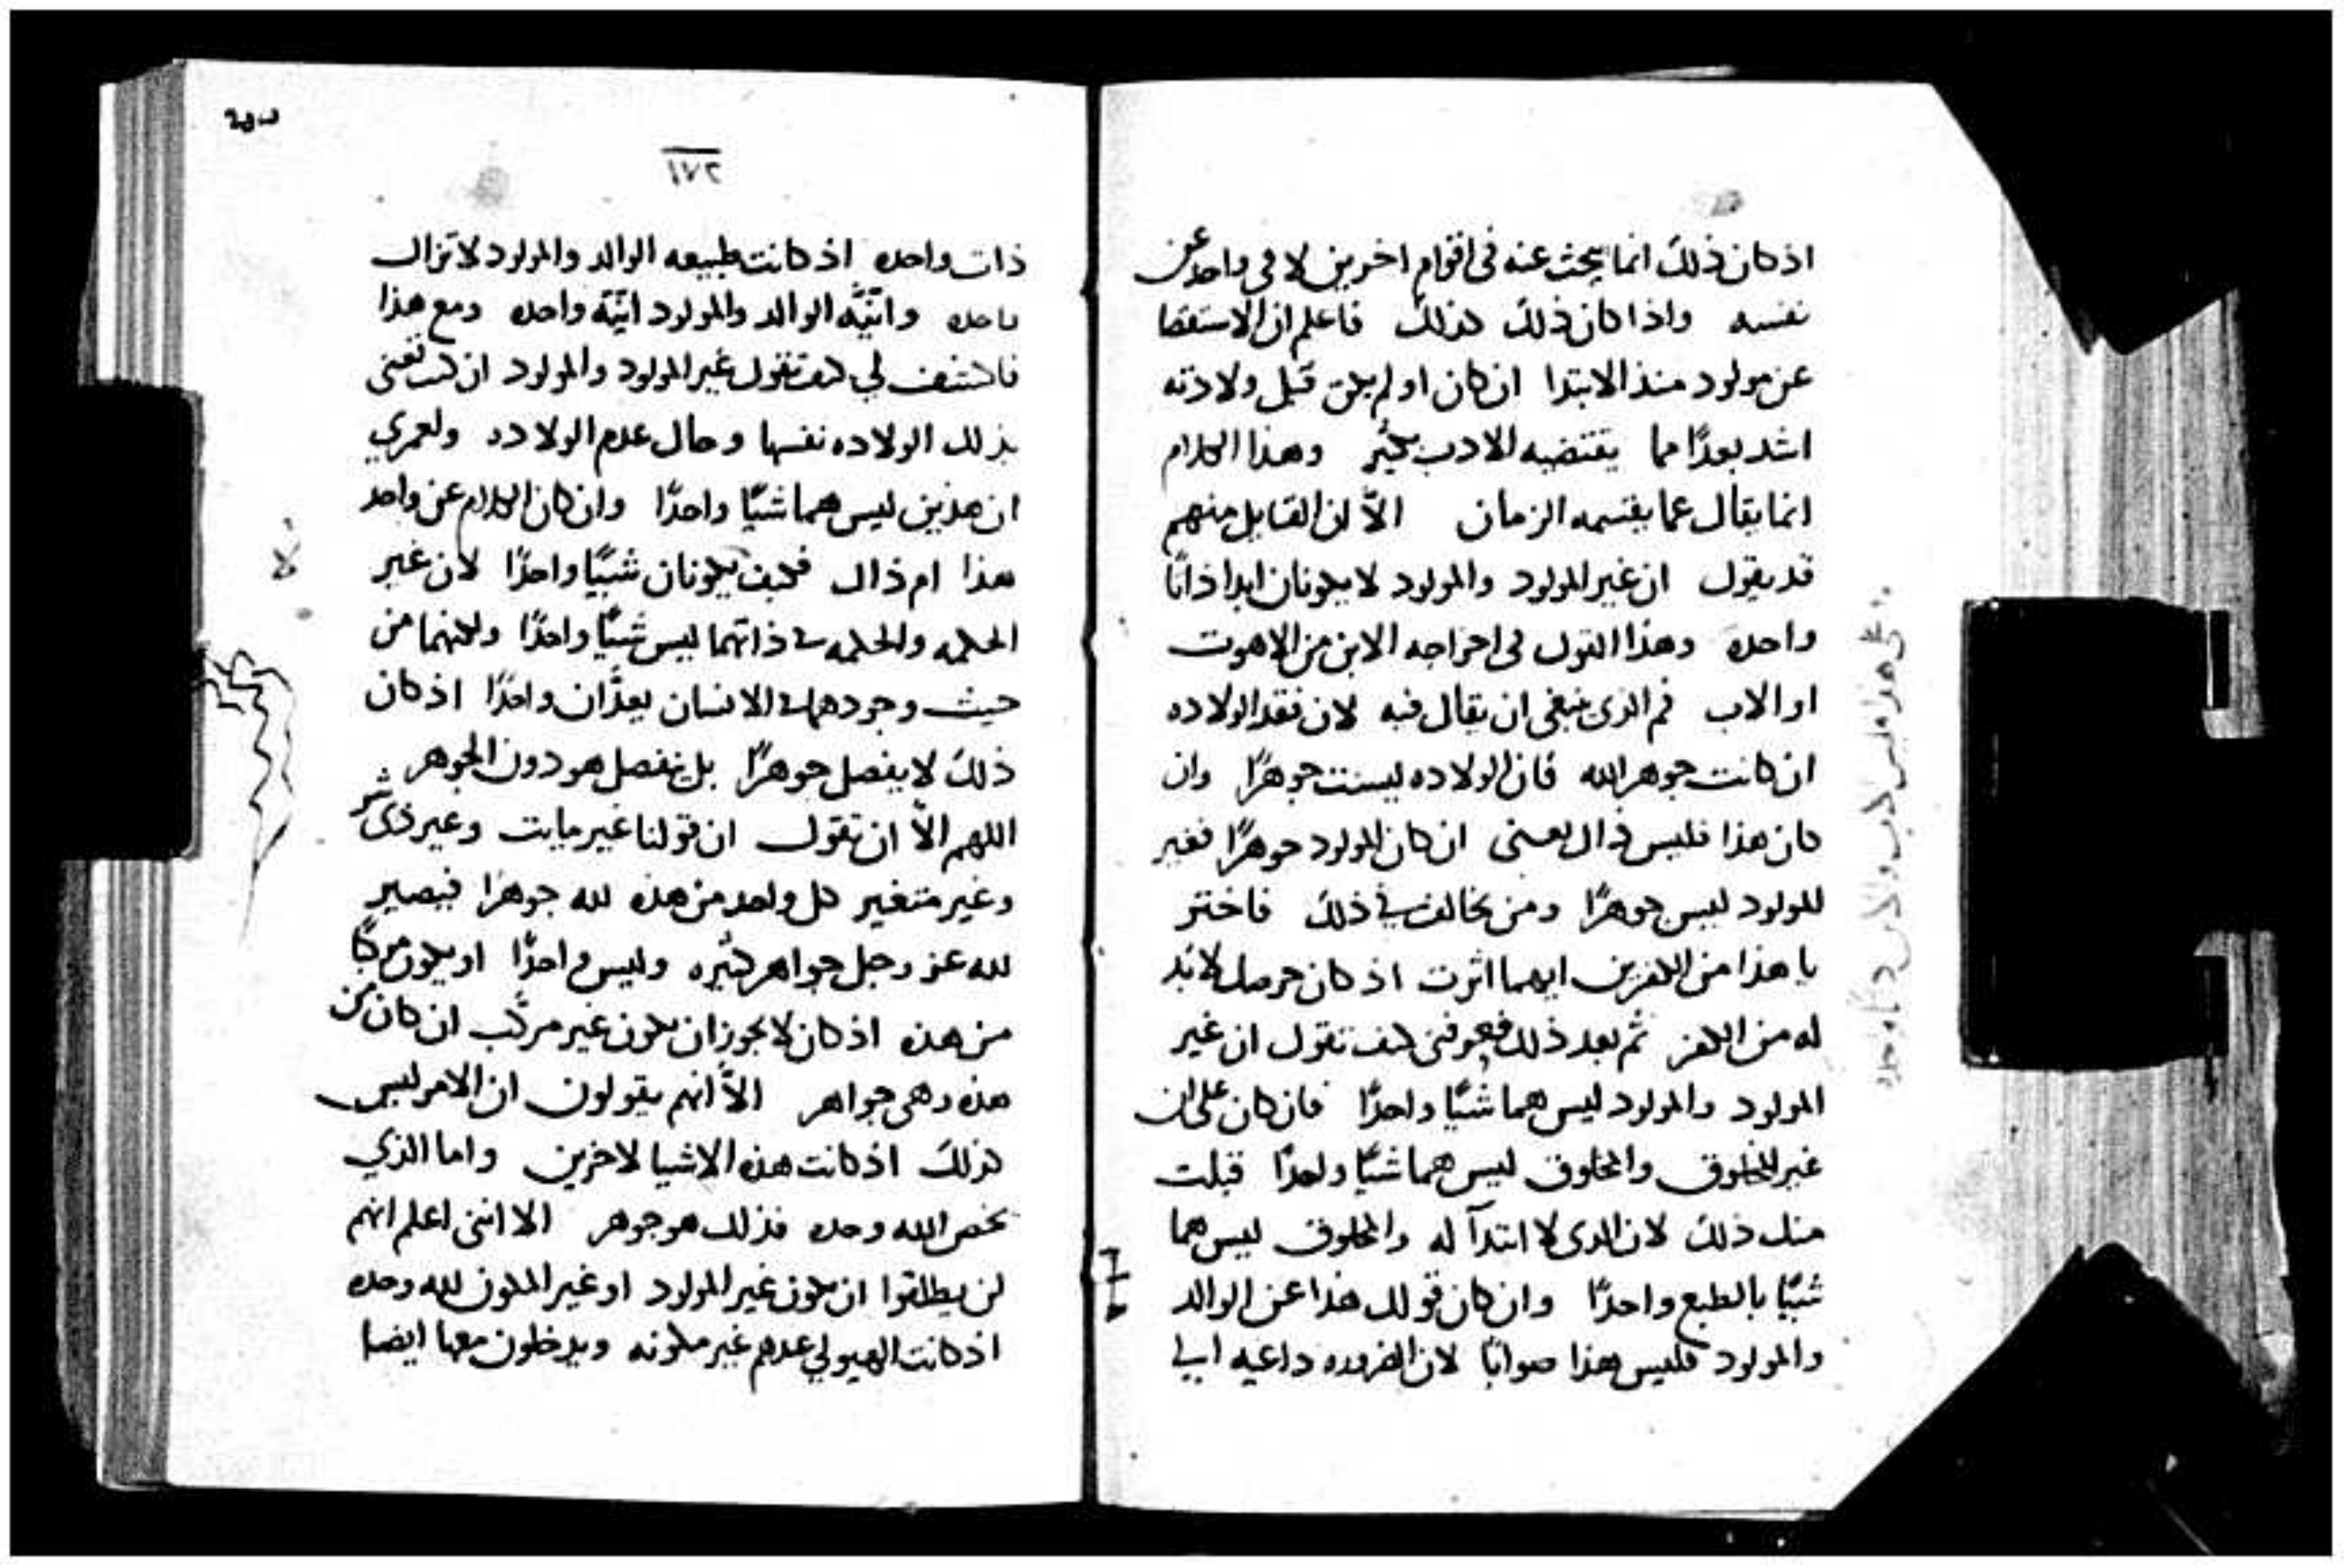 اذ كان ذلك انما يبحث عنه فى اقوام اخرين لا فى واحد عن
نفسه واذا كان ذلك كذلك فاعلم ان الاستقصا
عن مولود منذ الابتدا ان كان او لم يكن قبل ولادته
اشد بعدًا مما يقتضيه الادب بكثير وهذا الكلام
انما يقال عما يقسمه الزمان الاّ ان القايل منهم
قد يقول ان غير المولود والمولود لا يكونان ابدا ذاتًا
واحده وهذا القول فى اخراجه الابن من الاهوت
او الاب فم الذى ينبغى ان يقال فيه لان فقد الولاده
ان كانت جوهر الله فان الولاده ليست جوهرًا وان
كان هذا فليس ذاك يعنى ان كان المولود جوهرًا فغير
المولود ليس جوهرًا ومن يخالف فى ذلك فاختر
يا هذا من الكفرين ايهما اثرت اذ كان حرصك لا بد
له من الكفر ثم بعد ذلك فعرفنى كيف تقول ان غير
المولود والمولود ليس هما شيًا واحدًا فان كان على ان
غير المخلوق والمخلوق ليس هما شيًا واحدًا قبلت
منك ذلك لان الذى لا ابتدآ له والمخلوق ليس هما
شيًا بالطبع واحدًا وان كان قولك هذا عن الوالد
والمولود فليس هذا صوابًا لان الضروره داعيه الى
١٧٢
ذات واحده اذ كانت طبيعه الوالد والمولود لا تزال
واحده وانّيّه الوالد والمولود انيّة واحده ومع هذا
فاكشف لي كيف تقول غير المولود والمولود ان كنت تعنى
بذلك الولاده نفسها وحال عدم الولاده ولعمري
ان هذين ليس هما شيًا واحدًا وان كان الكلام عن واحد
هذا ام ذاك فكيف يكونان شيًا واحدًا لان غير
الحكمه والحكمه فى ذاتهما ليس شيًا واحدًا ولكنهما من
حيث وجودهما فى الانسان يعدَّان واحدًا اذ كان
ذلك لا يفصل جوهرًا بل ينفصل هو دون الجوهر
اللهم الاّ ان تقول ان قولنا غير مايت وغير ذى شر
وغير متغير كل واحد من هذه لله جوهرًا فيصير
لله عز وجل جواهر كثيره وليس واحدًا او يكون مركبًا
من هذه اذ كان لا يجوز ان يكون غير مركّب ان كان من
هذه وهى جواهر الاّ انهم يقولون ان الامر ليس
كذلك اذ كانت هذه الاشيا لاخرين واما الذي
يخص الله وحده فذلك هو جوهر الا اننى اعلم انهم
لن يطلقوا ان يكون غير المولود او غير المكون لله وحده
اذ كانت الهيولي عندهم غير مكونه ويدخلون معها ايضا